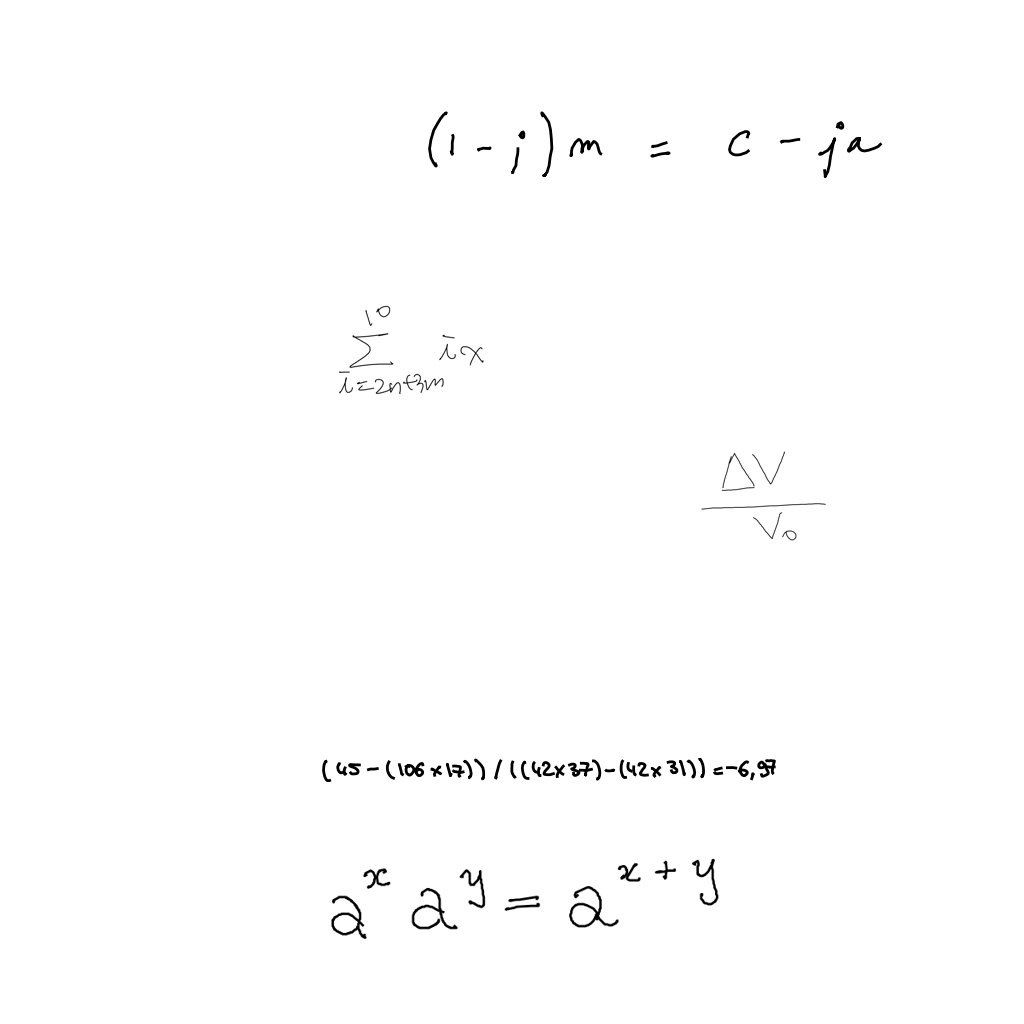 (1 - j) m = c - ja
\sum_{i=2n+3m}^{10} ix
\frac{\Delta V}{V_0}
(45-(106×17))/((42×37)-(42×31))=-6,97
a^x a^y = a^{x+y}